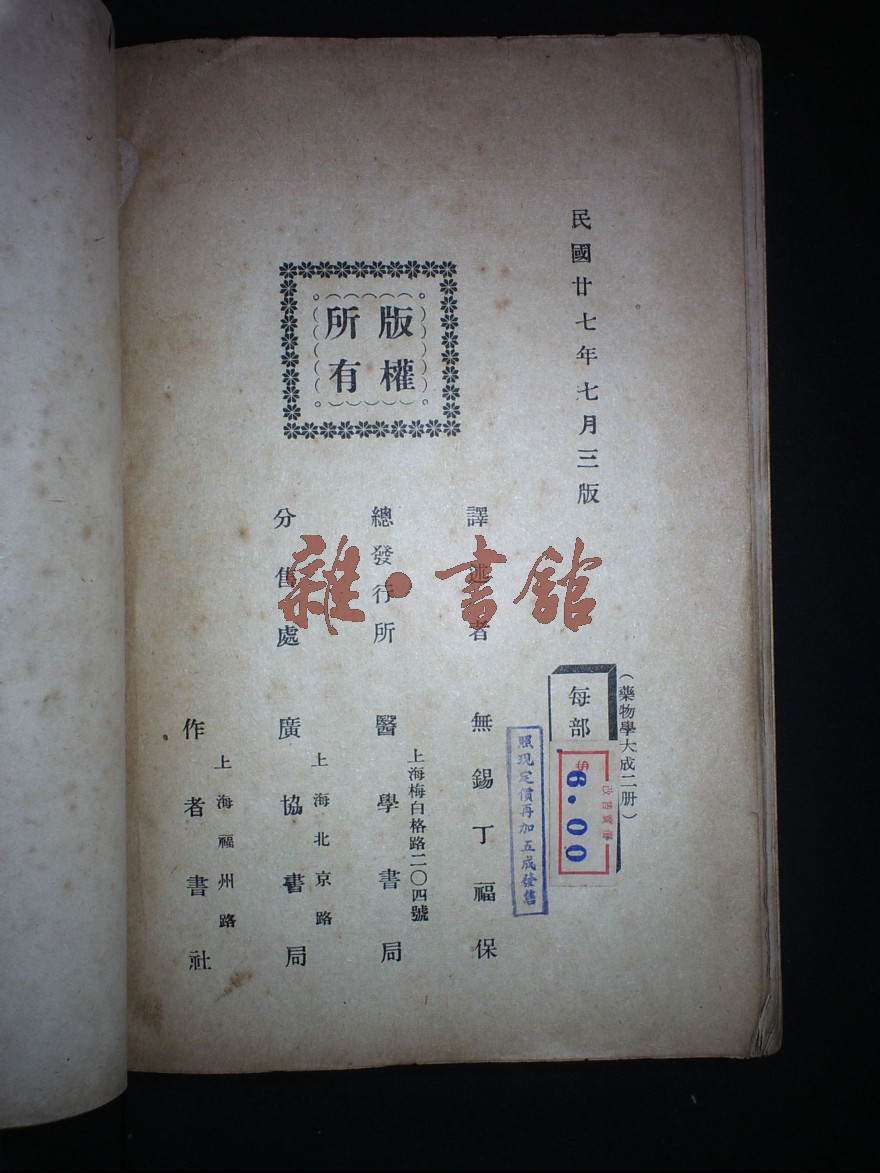 民國廿七年七月三版
(藥物學大成二册)
每部
6.00
照現定價再加五成發售
版權
所有
譯述者 無錫丁福保
總發行所 醫學書局
上海梅白格路二〇四號
分售處 廣協書局
上海北京路
作者書社
上海福州路
雜·書館